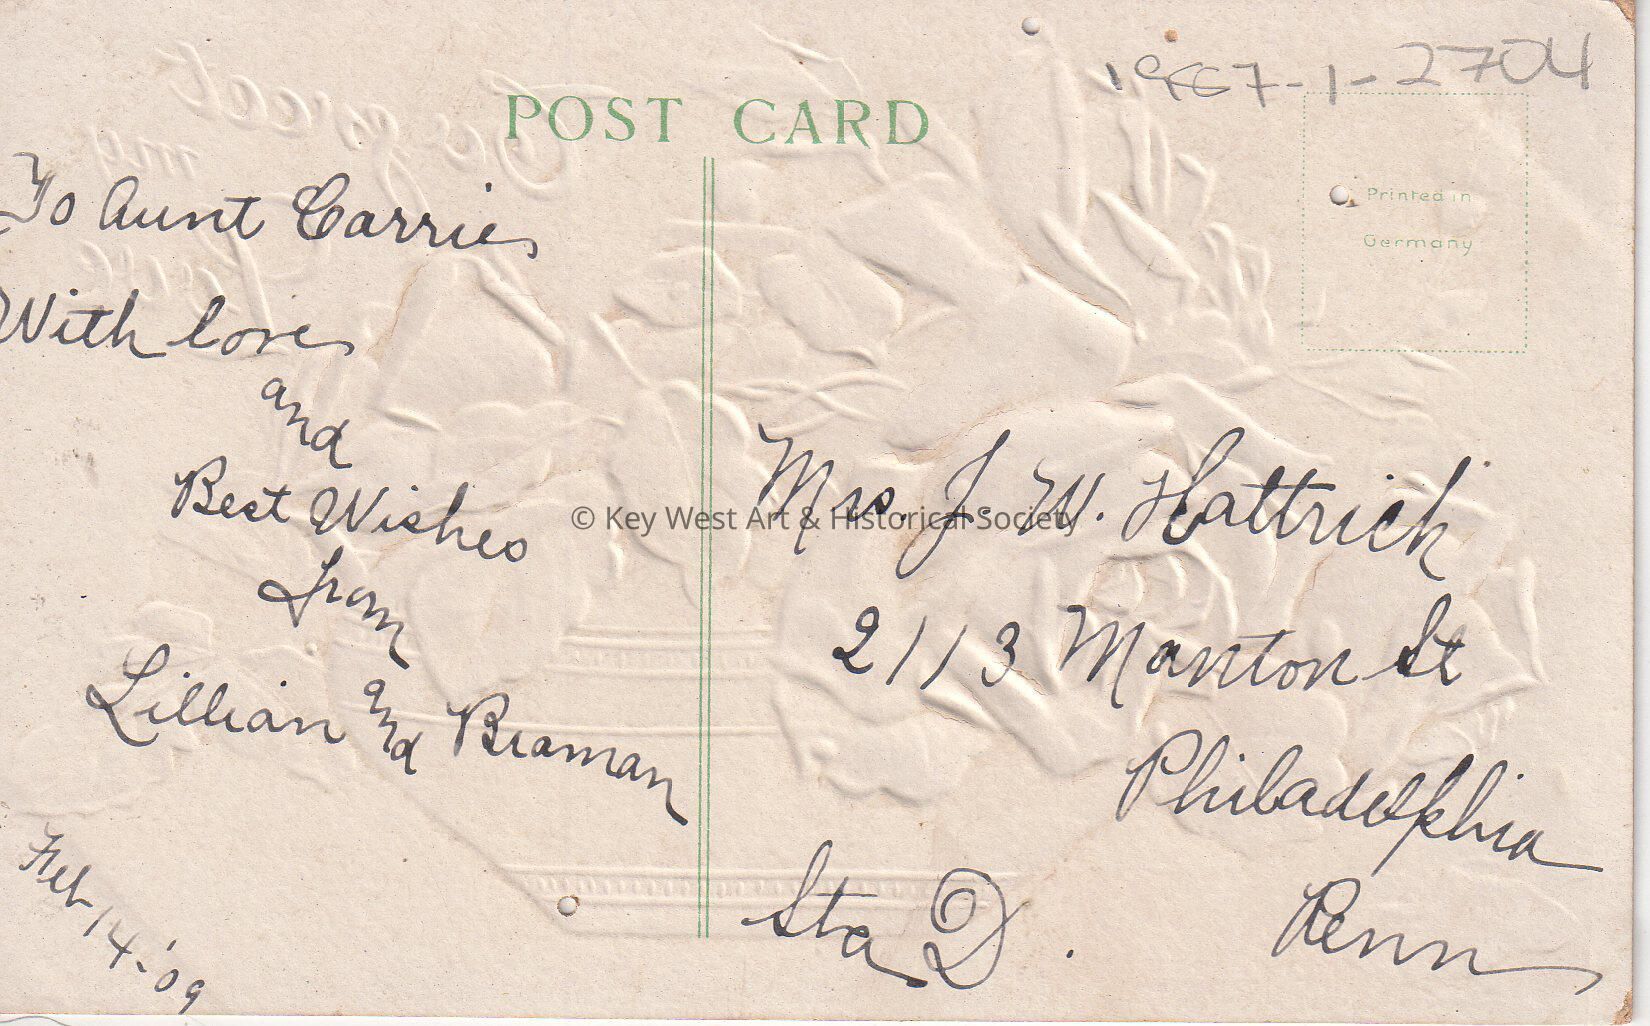 POST CARD
Printed in
Germany
To Aunt Carrie
With love
and
Best Wishes
from
Lillian and Braman
Feb 14-'09
Mrs. J. W. Hattrick
2113 Manton St
Philadelphia
Penn
Sta D.
© Key West Art & Historical Society